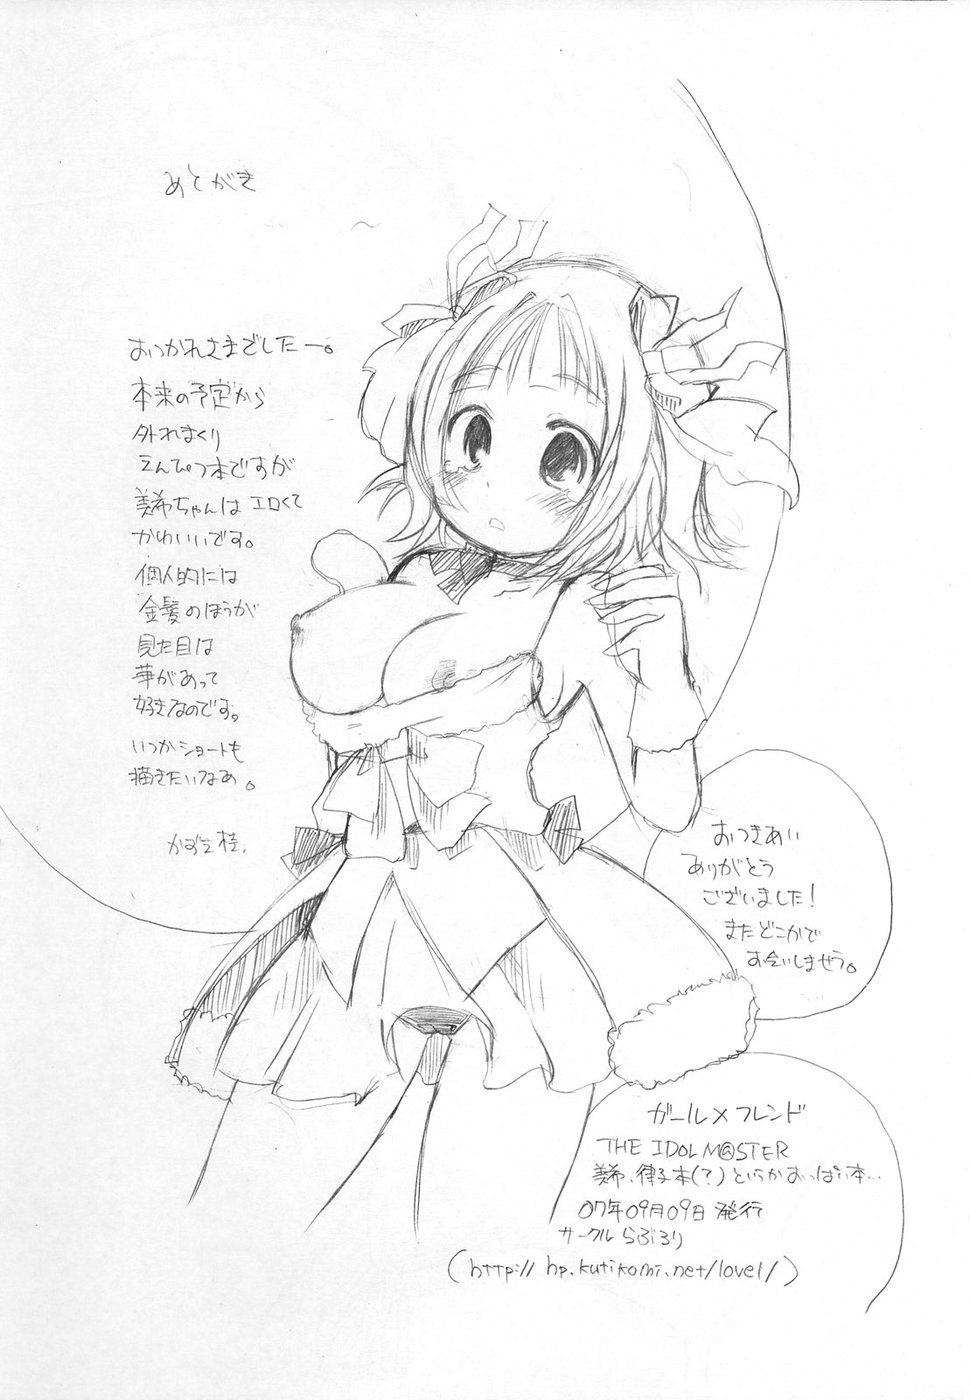 あとがき
おつかれさまでしたー。
本来の予定から
外れまくり
えんぴつ本ですが
美希ちゃんはエロくて
かわいいです。
個人的には
金髪のほうが
見た目は
華があって
好きなのです。
いつかショートも
描きたいなあ。
かずま桂.
おつきあい
ありがとう
ございました!
またどこかで
お会いしませう。
ガール×フレンド
THE IDOLM@STER
美希、律子本(?)というかおっぱい本…
07年09月09日発行
サークル らぶろり
(http://hp.kutikomi.net/lovel/)